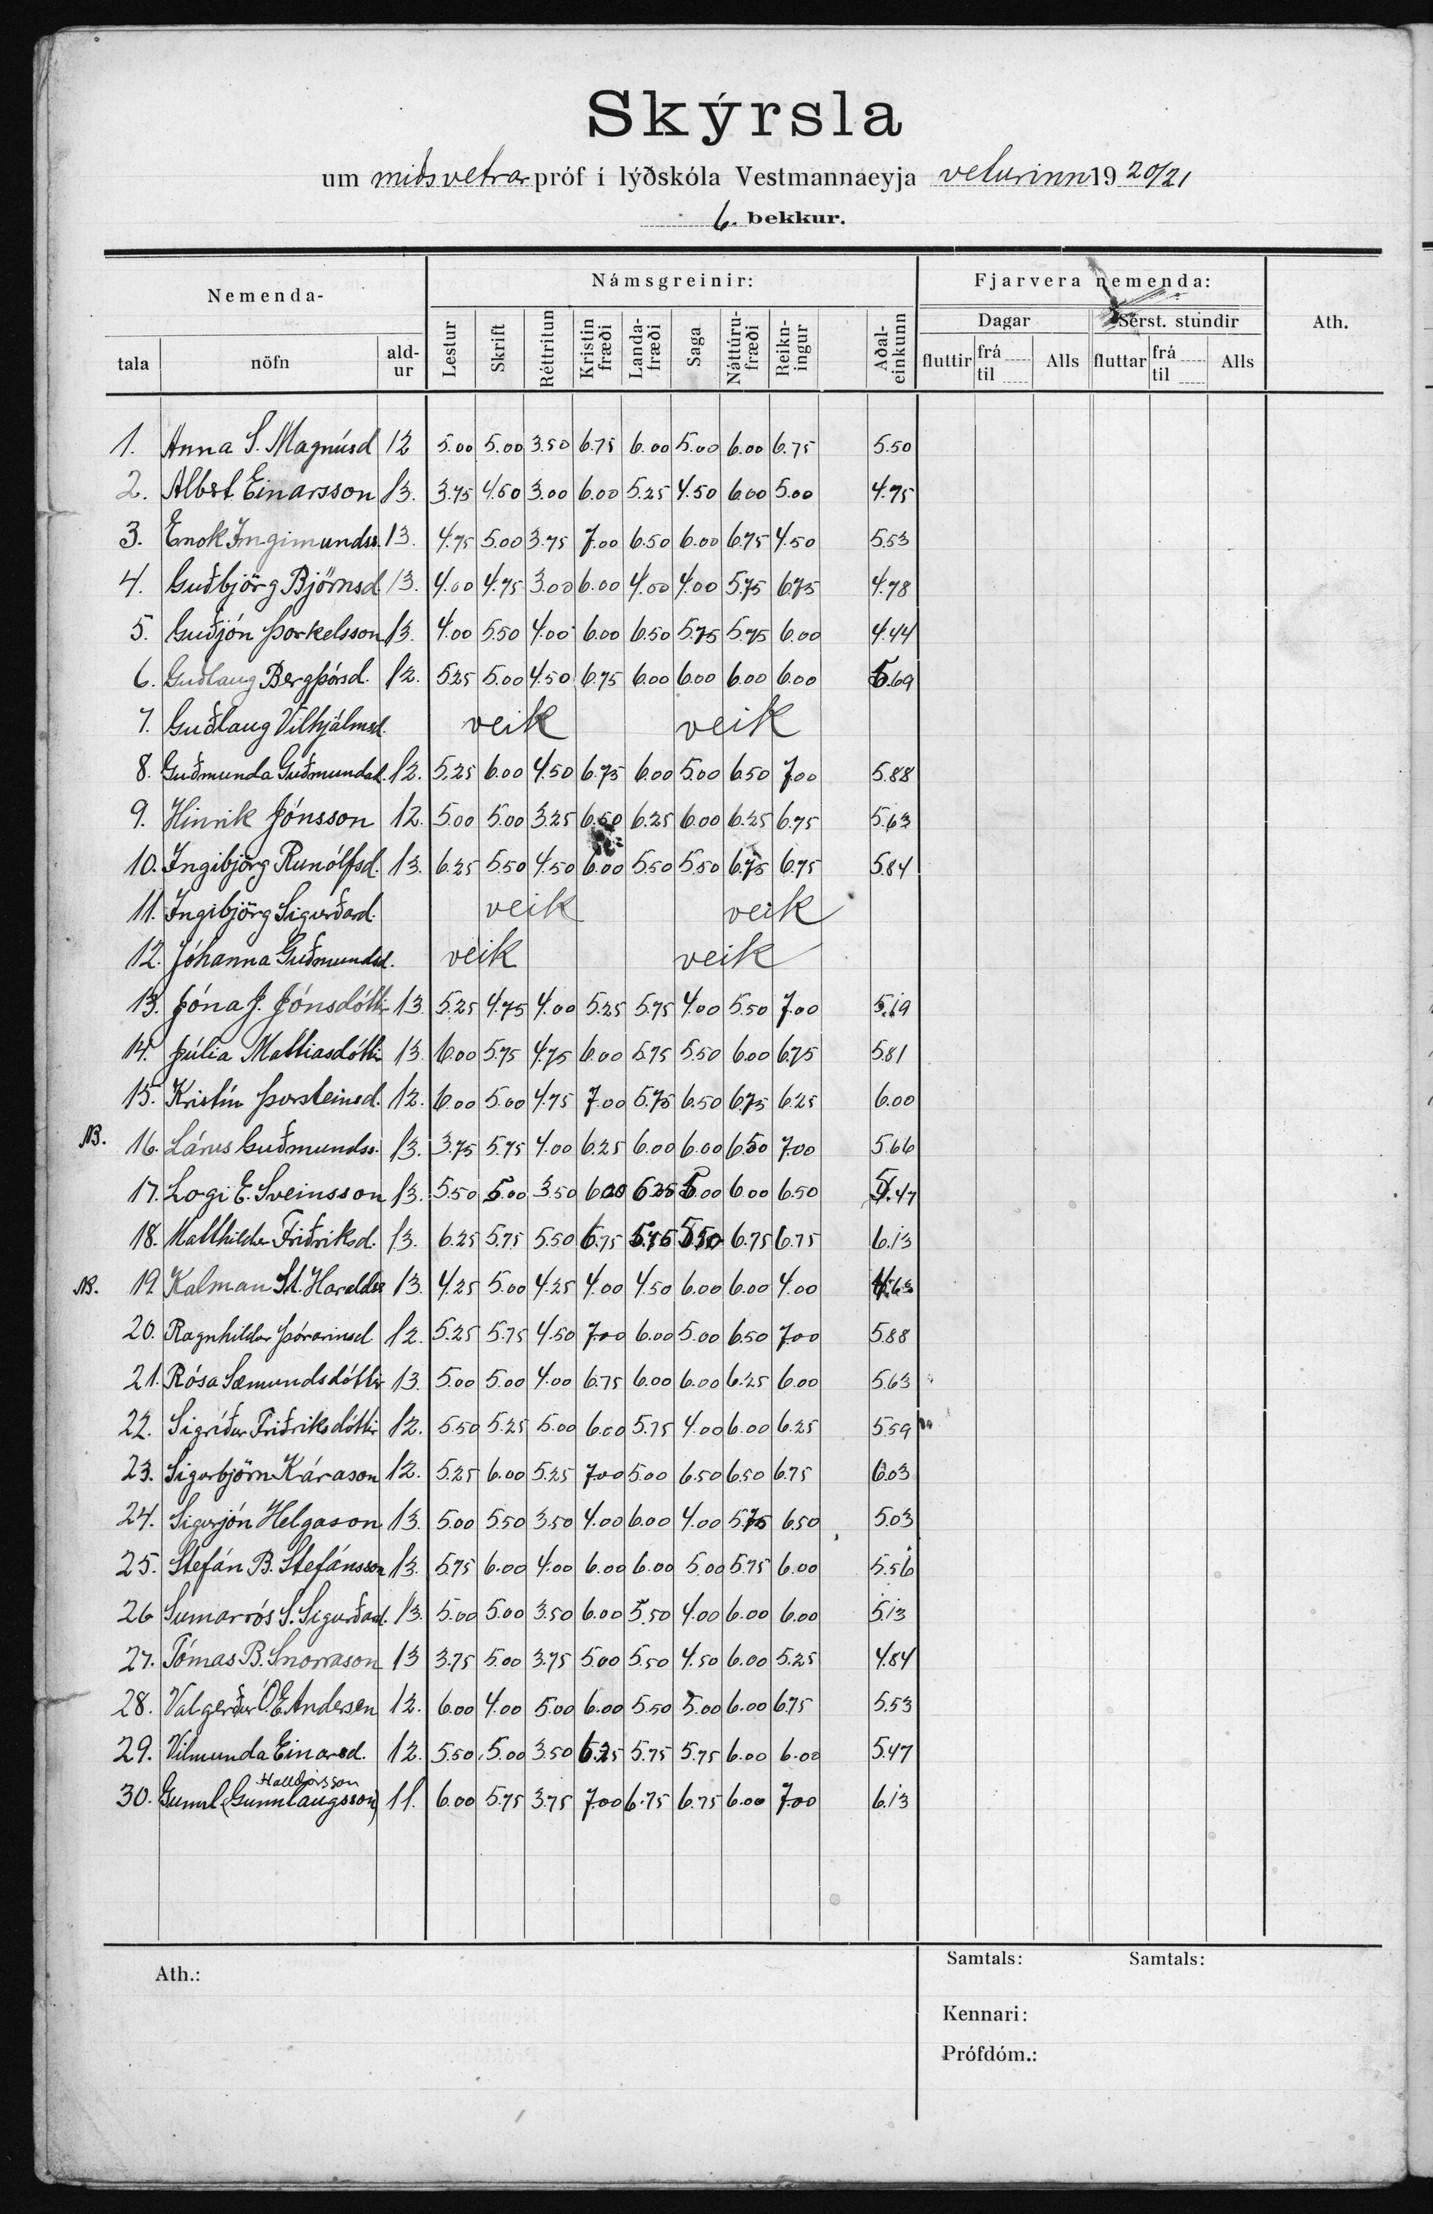 Skýrsla
um miðsvetrar próf í lýðskóla Vestmannaeyja veturinn 19 20/21
6. bekkur.
Nemenda- Námsgreinir: Fjarvera nemenda: Ath.
Dagar Sérst. stundir
tala nöfn ald-ur Lestur Skrift Réttritun Kristinfræði Landa-fræði Saga Náttúru-fræði Reikn-ingur Aðal-einkunn fluttir frá til Alls fluttar frá til Alls
1. Anna S. Magnúsd 12 5.00 5.00 3.50 6.75 6.00 5.00 6.00 6.75 5.50
2. Albert Einarsson 13. 3.75 4.50 3.00 6.00 5.25 4.50 6.00 5.00 4.75
3. Enok Ingimundss. 13. 4.75 5.00 3.75 7.00 6.50 6.00 6.75 4.50 5.53
4. Guðbjörg Björnsd 13. 4.00 4.75 3.00 6.00 4.00 4.00 5.75 6.75 4.78
5. Guðjón Þorkelsson 13. 4.00 5.50 4.00 6.00 6.50 5.75 5.75 6.00 4.44
6. Guðlaug Bergþórsd. 12. 5.25 5.00 4.50 6.75 6.00 6.00 6.00 6.00 5.69
7. Guðlaug Vilhjálmsd. veik veik
8. Guðmunda Guðmundsd. 12. 5.25 6.00 4.50 6.75 6.00 5.00 6.50 7.00 5.88
9. Hinrik Jónsson 12. 5.00 5.00 3.25 6.50 6.25 6.00 6.25 6.75 5.63
10. Ingibjörg Runólfsd. 13. 6.25 5.50 4.50 6.00 5.50 5.50 6.75 6.75 5.84
11. Ingibjörg Sigurðard. veik veik
12. Jóhanna Guðmundsd. veik veik
13. Jóna J. Jónsdóttir 13 5.25 4.75 4.00 5.25 5.75 4.00 5.50 7.00 5.19
14. Júlía Mattiasdóttir 13. 6.00 5.75 4.75 6.00 5.75 5.50 6.00 6.75 5.81
15. Kristín Þorsteinsd. 12. 6.00 5.00 4.75 7.00 5.75 6.50 6.75 6.25 6.00
NB. 16. Lárus Guðmundss. 13. 3.75 5.75 4.00 6.25 6.00 6.00 6.50 7.00 5.66
17. Logi E. Sveinsson 13. 5.50 5.00 3.50 6.00 6.25 5.00 6.00 6.50 5.47
18. Matthildur Friðriksd. 13. 6.25 5.75 5.50 6.75 5.75 5.50 6.75 6.75 6.13
NB. 19. Kalman St. Haraldss 13. 4.25 5.00 4.25 4.00 4.50 6.00 6.00 4.00 4.63
20. Ragnhildur Þórarinsd 12. 5.25 5.75 4.50 7.00 6.00 5.00 6.50 7.00 5.88
21. Rósa Sæmundsdóttir 13. 5.00 5.00 4.00 6.75 6.00 6.00 6.25 6.00 5.63
22. Sigríður Friðriksdóttir 12. 5.50 5.25 5.00 6.00 5.75 4.00 6.00 6.25 5.59
23. Sigurbjörn Kárason 12. 5.25 6.00 5.25 7.00 5.00 6.50 6.50 6.75 6.03
24. Sigurjón Helgason 13. 5.00 5.50 3.50 4.00 6.00 4.00 5.75 6.50 5.03
25. Stefán B. Stefánsson 13. 5.75 6.00 4.00 6.00 6.00 5.00 5.75 6.00 5.56
26 Sumarrós S. Sigurðard. 13. 5.00 5.00 3.50 6.00 5.50 4.00 6.00 6.00 5.13
27. Tómas B. Snorrason 13 3.75 5.00 3.75 5.00 5.50 4.50 6.00 5.25 4.84
28. Valgerður Ó.E. Andersen 12. 6.00 4.00 5.00 6.00 5.50 5.00 6.00 6.75 5.53
29. Vilmunda Einarsd. 12. 5.50 5.00 3.50 6.25 5.75 5.75 6.00 6.00 5.47
Halldórsson
30. Gunnl. (Gunnlaugsson) 11. 6.00 5.75 3.75 7.00 6.75 6.75 6.00 7.00 6.13
Ath.: Samtals: Samtals:
Kennari:
Prófdóm.: